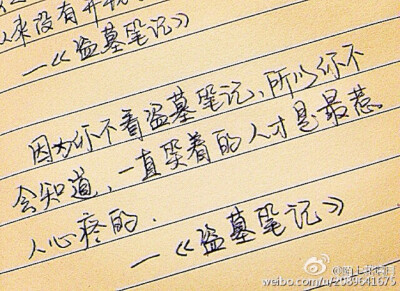 人来没有开
—《盗墓笔记》
因为你不看盗墓笔记,所以你不
会知道,一直笑着的人才是最惹
人心疼的.
—《盗墓笔记》
weibo.com/u/2089641675